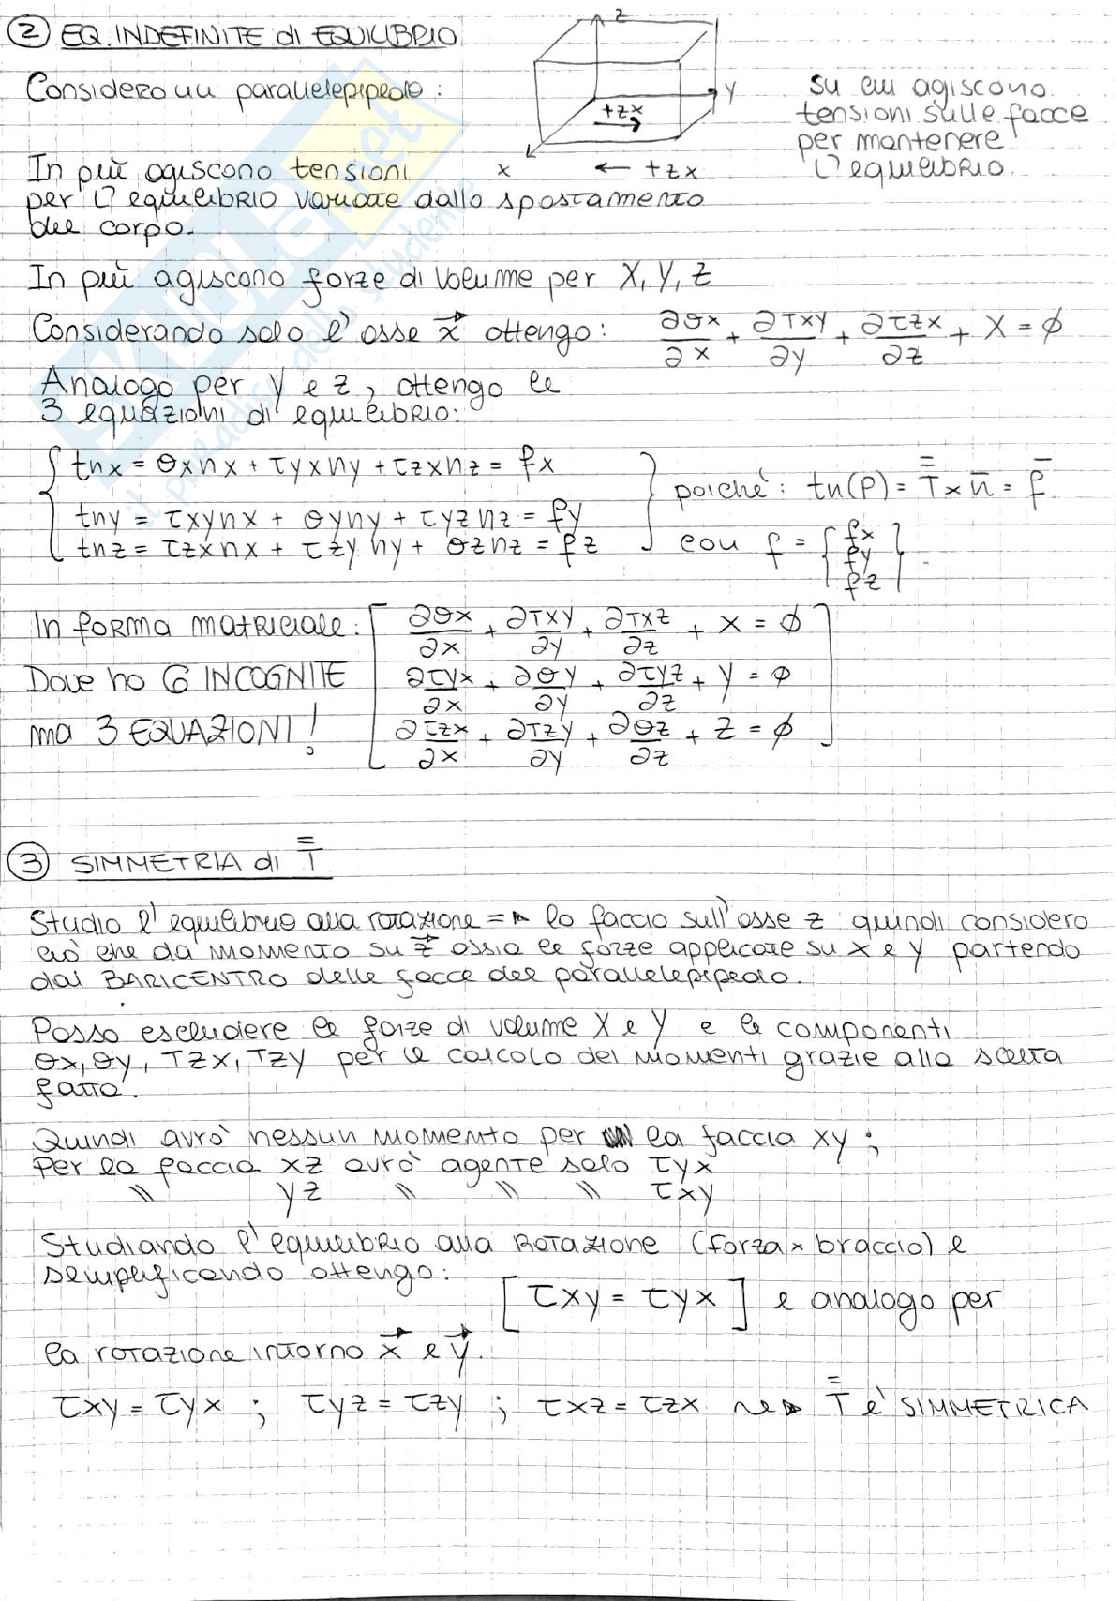 ② EQ. INDEFINITE di EQUILIBRIO
Considero un parallelepipedo:
z
y
x
+zx
← +zx
su cui agiscono
tensioni sulle facce
per mantenere
l'equilibrio.
In più agiscono tensioni
per l'equilibrio variate dallo spostamento
del corpo.
In più agiscono forze di volume per X, Y, Z
Considerando solo l'asse x⃗ ottengo: ∂σx/∂x + ∂τxy/∂y + ∂τzx/∂z + X = ϕ
Analogo per y e z, ottengo le
3 equazioni di equilibrio:
tnx = σxnx + τyxny + τzxnz = fx
tny = τxynx + σyny + τyznz = fy
tnz = τzxnx + τzyny + σznz = fz
poiché: tn(P) = T̿ x n̄ = f̄
con f = { fx
fy
fz }
In forma matriciale: [ ∂σx/∂x + ∂τxy/∂y + ∂τxz/∂z + X = ϕ
Dove ho 6 INCOGNITE ∂τyx/∂x + ∂σy/∂y + ∂τyz/∂z + Y = ϕ
ma 3 EQUAZIONI! ∂τzx/∂x + ∂τzy/∂y + ∂σz/∂z + Z = ϕ ]
③ SIMMETRIA di T̿
Studio l'equilibrio alla rotazione => lo faccio sull'asse z quindi considero
ciò che da momento su z⃗ ossia le forze applicate su x e y partendo
dal BARICENTRO delle facce del parallelepipedo.
Posso escludere le forze di volume X e Y e le componenti
σx, σy, τzx, τzy per il calcolo dei momenti grazie alla scelta
fatta.
Quindi avrò nessun momento per la faccia xy;
Per la faccia xz avrò agente solo τyx
" yz " " " τxy
Studiando l'equilibrio alla ROTAZIONE (forza x braccio) e
semplificando ottengo:
[τxy = τyx] e analogo per
la rotazione intorno x⃗ e y⃗.
τxy = τyx ; τyz = τzy ; τxz = τzx => T̿ è SIMMETRICA